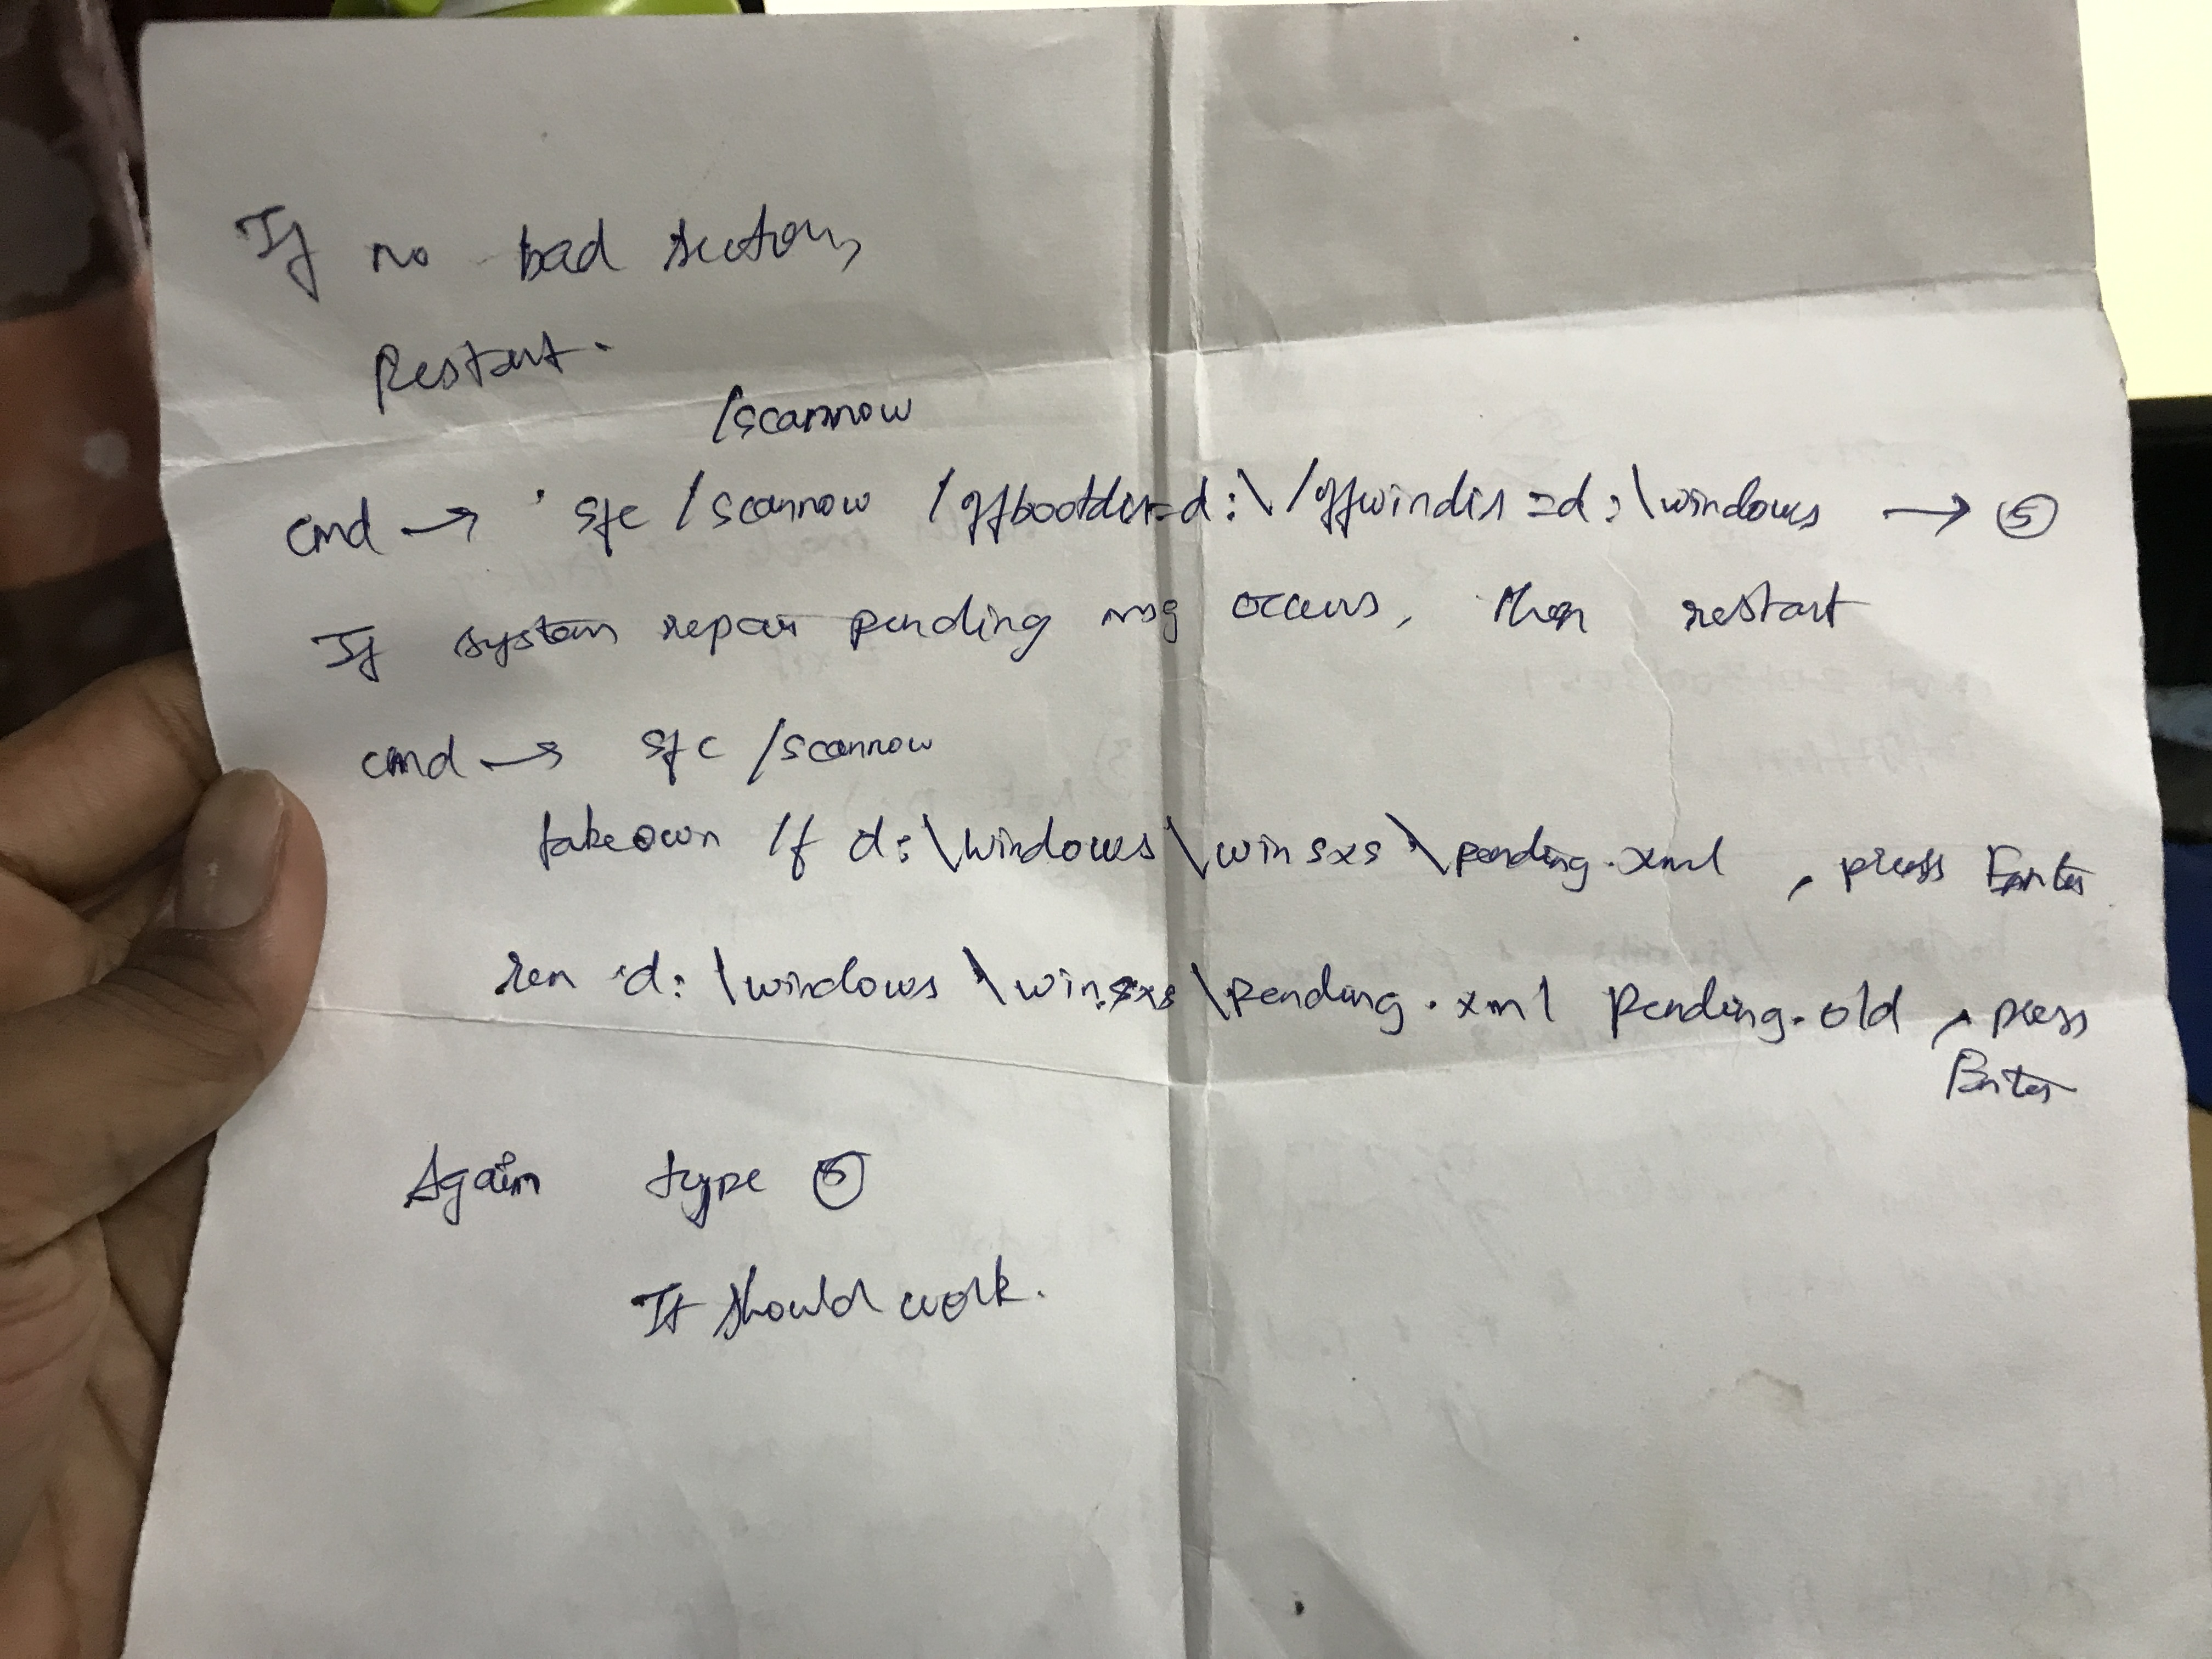 If no bad sectors,
Restart.
/scannow
cmd → sfc /scannow /offbootdir=d:\ /offwindir=d:\windows → ⑤
If system repair pending msg occurs, then restart
cmd → sfc /scannow
takeown /f d:\windows\winsxs\pending.xml, press Enter
ren d:\windows\winsxs\pending.xml pending.old, press
Enter
Again type ⑤
It should work.